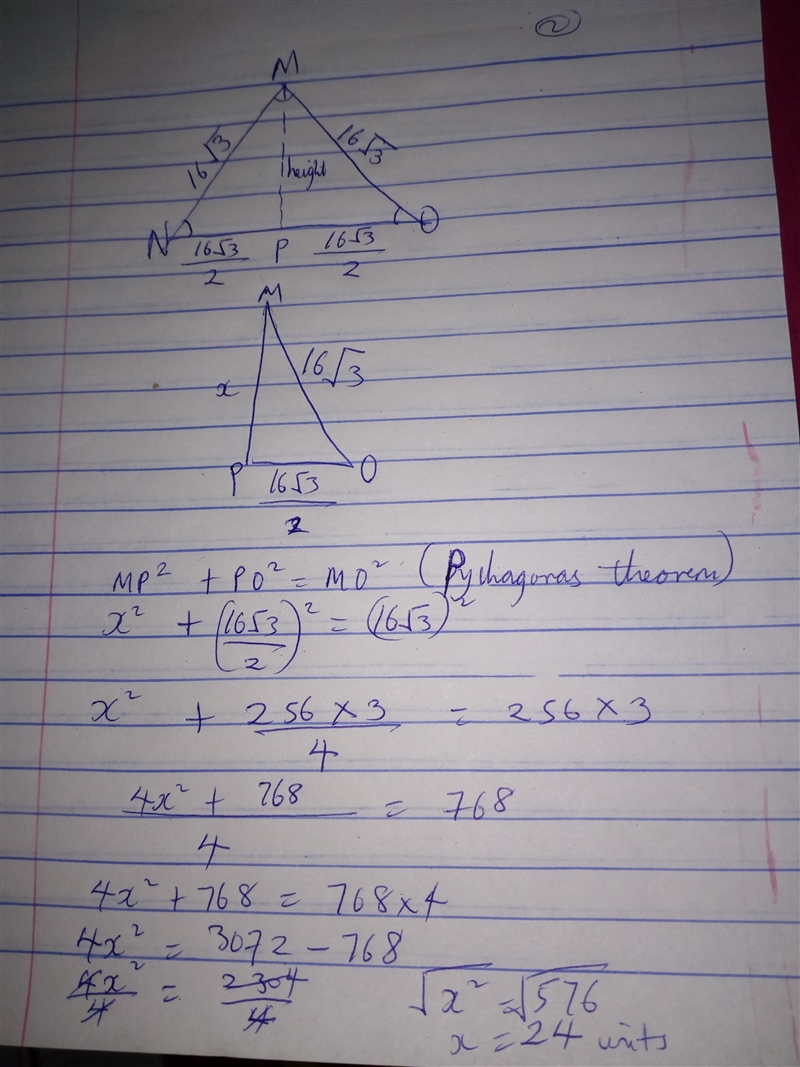 2
M
16√3 16√3
height
N P O
16√3/2 16√3/2
M
x 16√3
P O
16√3/2
MP² + PO² = MO² (Pythagoras theorem)
x² + (16√3/2)² = (16√3)²
x² + 256 × 3/4 = 256 × 3
4x² + 768/4 = 768
4x² + 768 = 768 × 4
4x² = 3072 - 768
4x²/4 = 2304/4 √x² = √576
x = 24 units